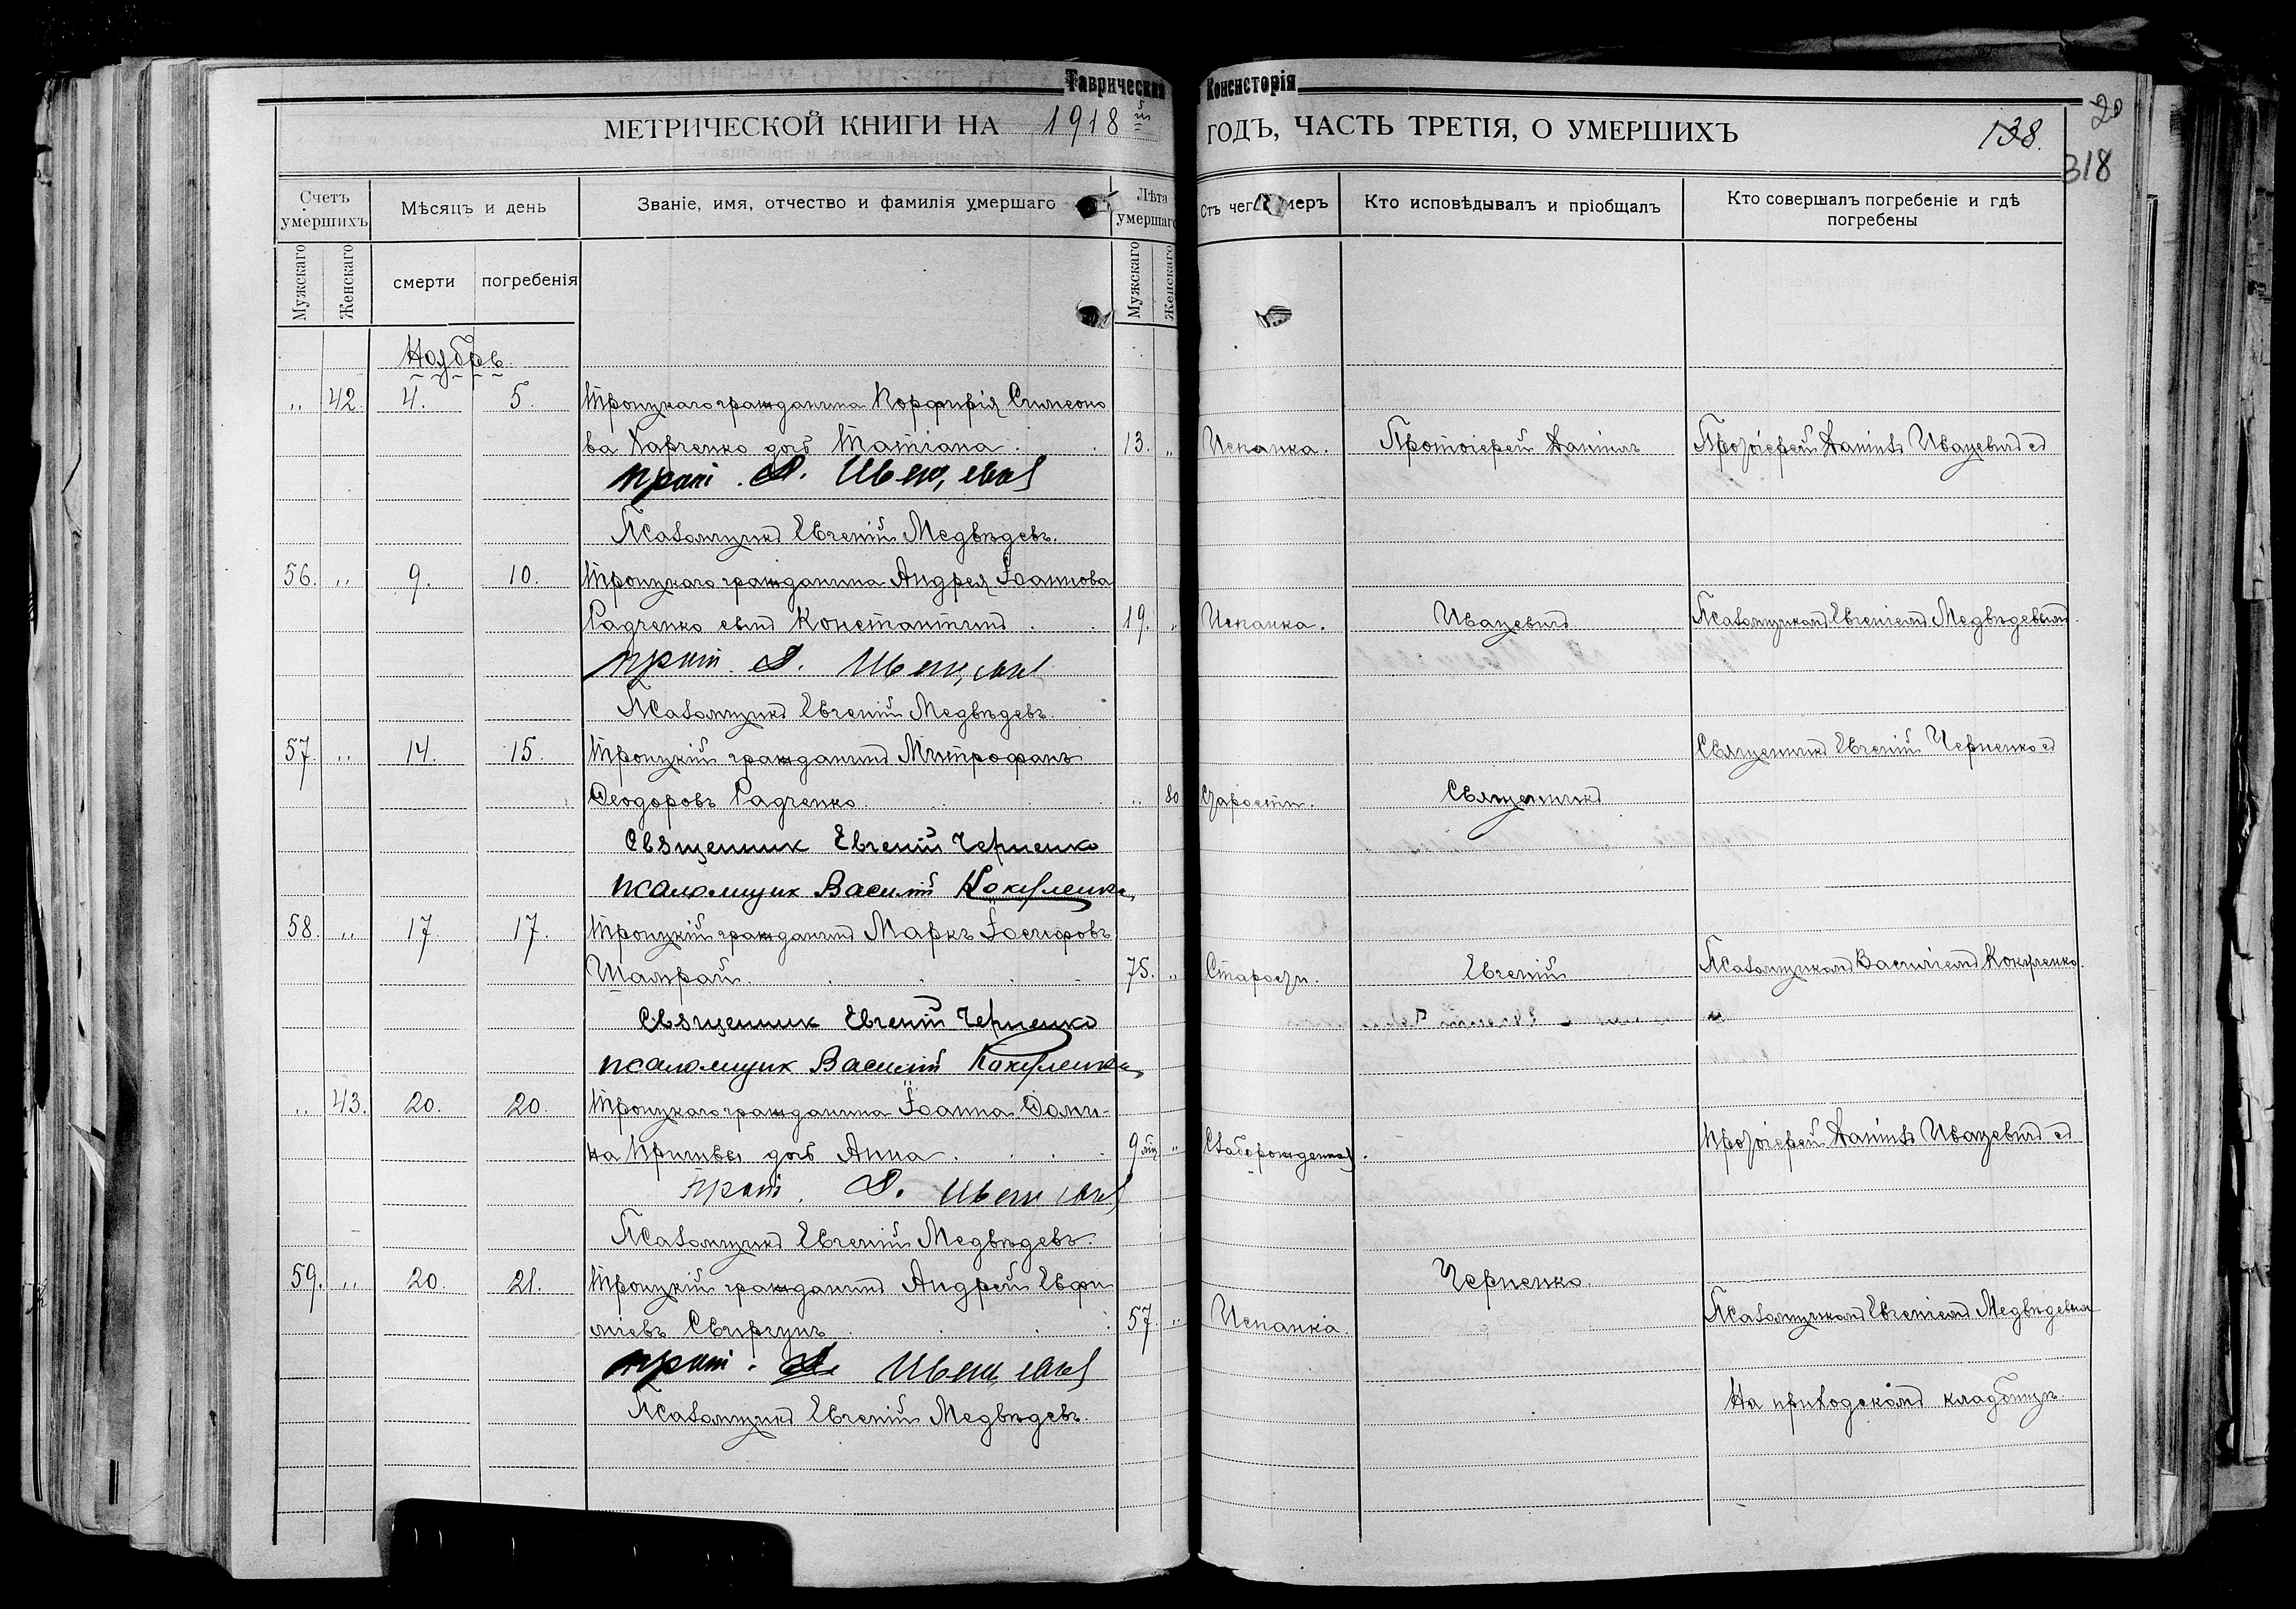 Таврическая Консисторія
МЕТРИЧЕСКОЙ КНИГИ НА 1918й ГОДЪ, ЧАСТЬ ТРЕТІЯ, О УМЕРШИХЪ 138.
20
318
Счетъ умершихъ
Мѣсяцъ и день
Званіе, имя, отчество и фамилія умершаго
Лѣта умершаго
Отъ чего умеръ
Кто исповѣдывалъ и пріобщалъ
Кто совершалъ погребеніе и гдѣ погребены
Мужскаго
Женскаго
смерти
погребенія
Мужскаго
Женскаго
Ноябрь
„ 42. 4. 5. Троицкаго гражданина Порфирія Симеоно
ва Харченко дочь Татіана. 13. „ Испанка. Протоіерей Даніилъ Протоіерей Даніилъ Ивацевичъ съ
прот. Д. Ивацевич
Псаломщикъ Евгеній Медвѣдевъ.
56. „ 9. 10. Троицкаго гражданина Андрея Іоаннова
Радченко сынъ Константинъ. 19. „ Испанка. Ивацевичъ Псаломщикомъ Евгеніемъ Медвѣдевымъ.
прот. Д. Ивацевич
Псаломщикъ Евгеній Медвѣдевъ.
57. „ 14. 15. Троицкій гражданинъ Митрофанъ Священникъ Евгеній Черненко съ
Ѳеодоровъ Радченко. „ 80 Старости. Священникъ
Священник Евгеній Черненко
псаломщик Василій Кокуленко
58. „ 17. 17. Троицкій гражданинъ Маркъ Іосифовъ
Шамрай. 75. „ Старости. Евгеній Псаломщикомъ Василіемъ Кокуленко.
Священник Евгеній Черненко
псаломщик Василій Кокуленко
„ 43. 20. 20. Троицкаго гражданина Іоанна Доми-
на Примвы дочь Анна. 9 мц „ Слаборожденная. Протоіерей Даніилъ Ивацевичъ съ
прот. Д. Ивацевич
Псаломщикъ Евгеній Медвѣдевъ.
59. „ 20. 21. Троицкій гражданинъ Андрей Евфи Черненко.
міевъ Свиргунъ. 57. „ Испанка. Псаломщикомъ Евгеніемъ Медвѣдевым
прот. Д. Ивацевич
Псаломщикъ Евгеній Медвѣдевъ
На приходскомъ кладбищѣ.